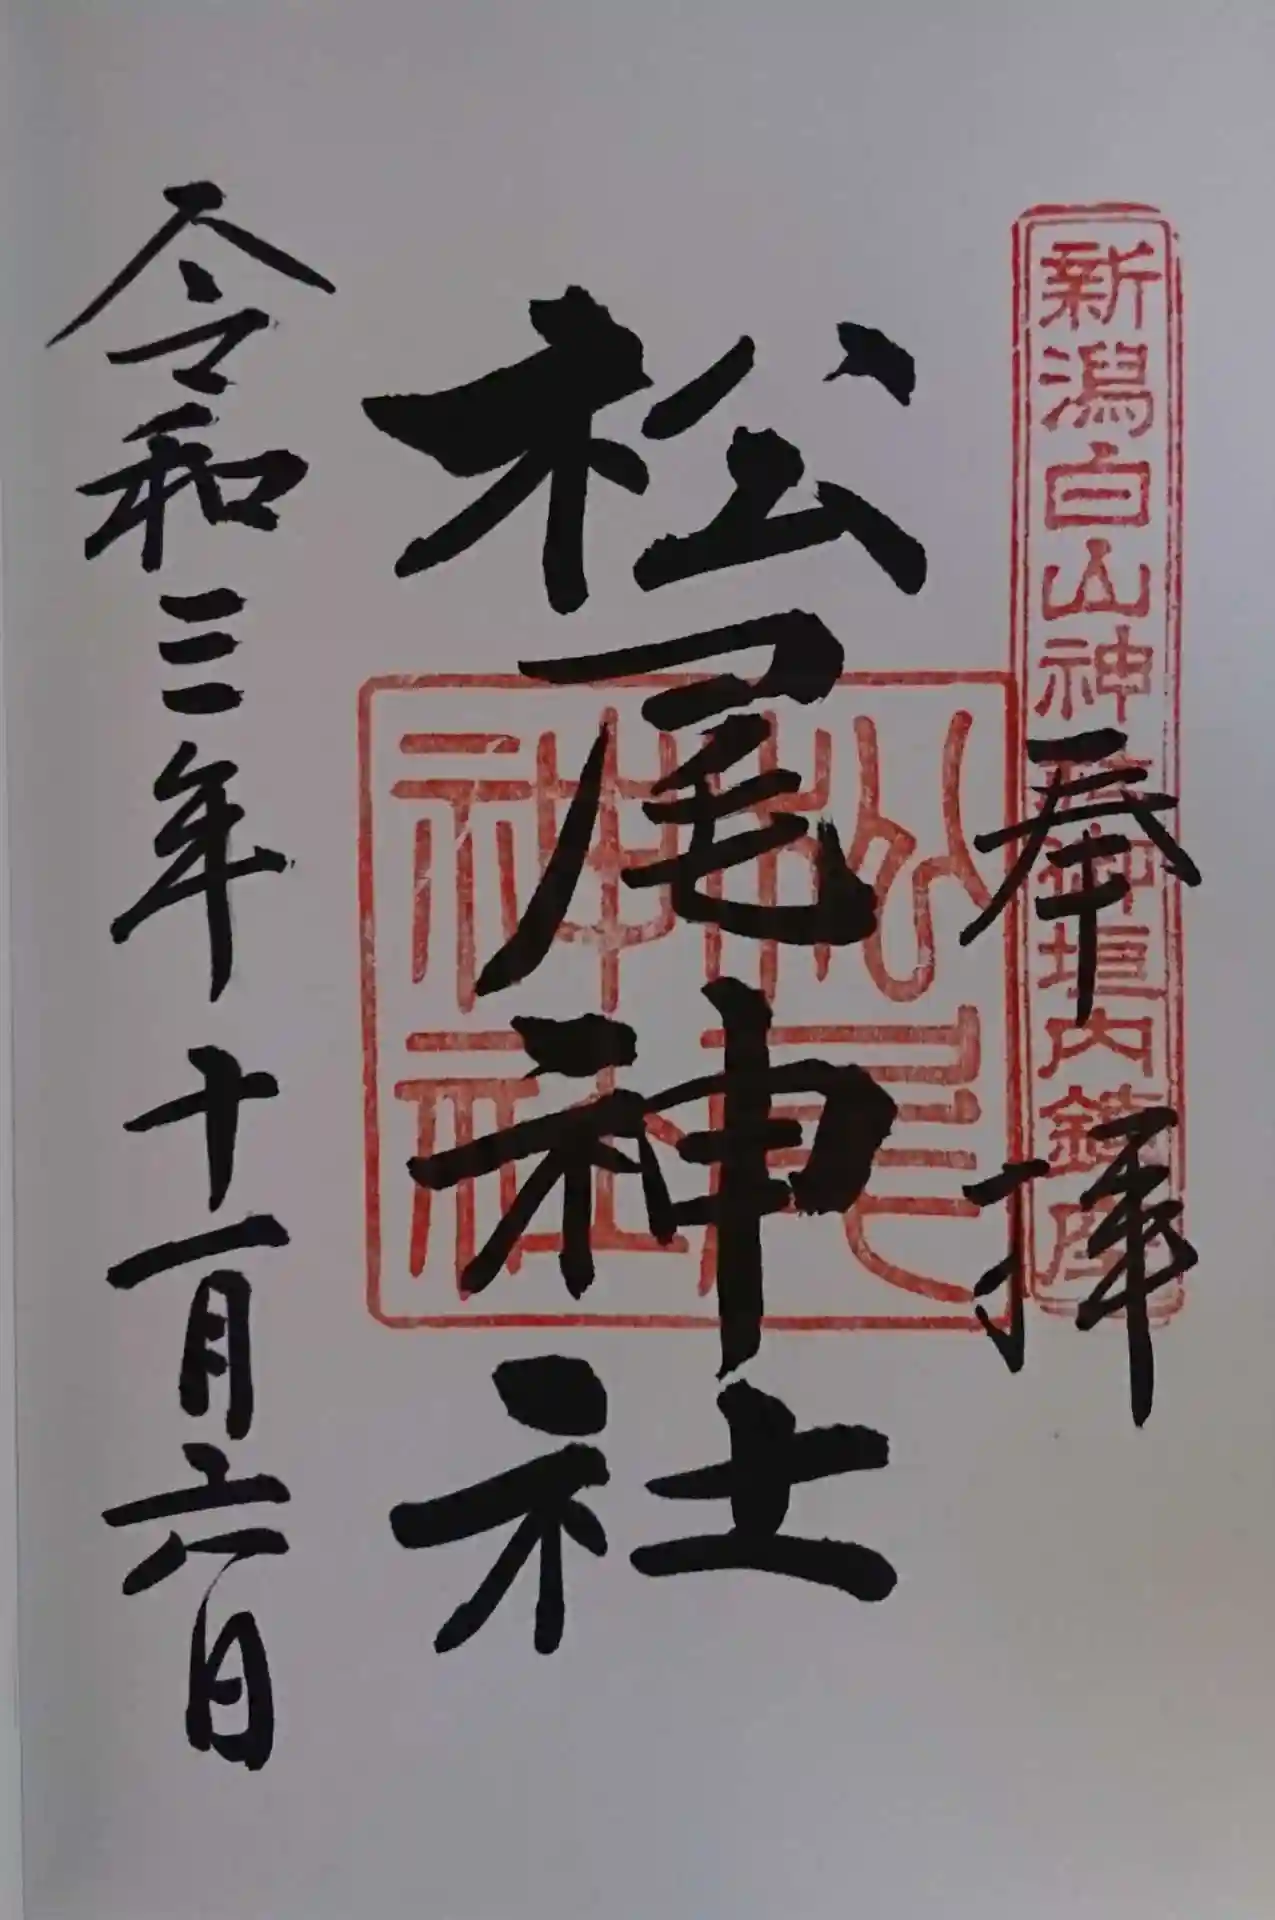 新潟白山神社御垣内鎮座
奉拝
松尾神社
松尾神社
令和三年十一月六日